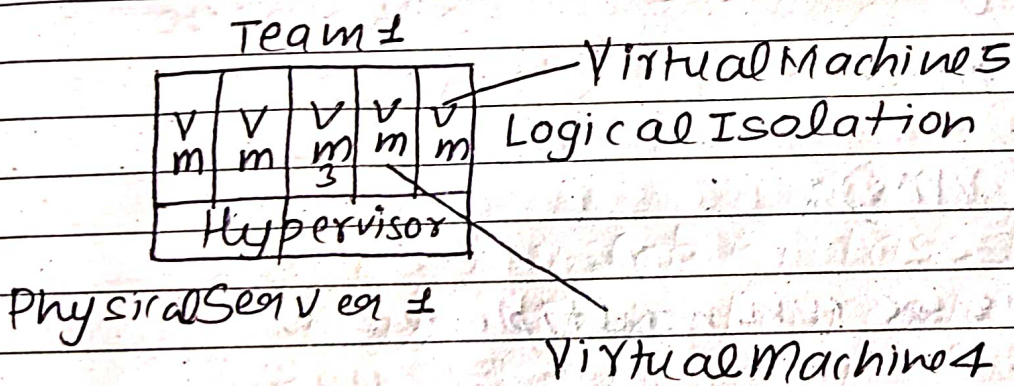 Team 1
Virtual Machine 5
Vm Vm Vm 3 Vm Vm
Logical Isolation
Hypervisor
Physical Server 1
Virtual Machine 4